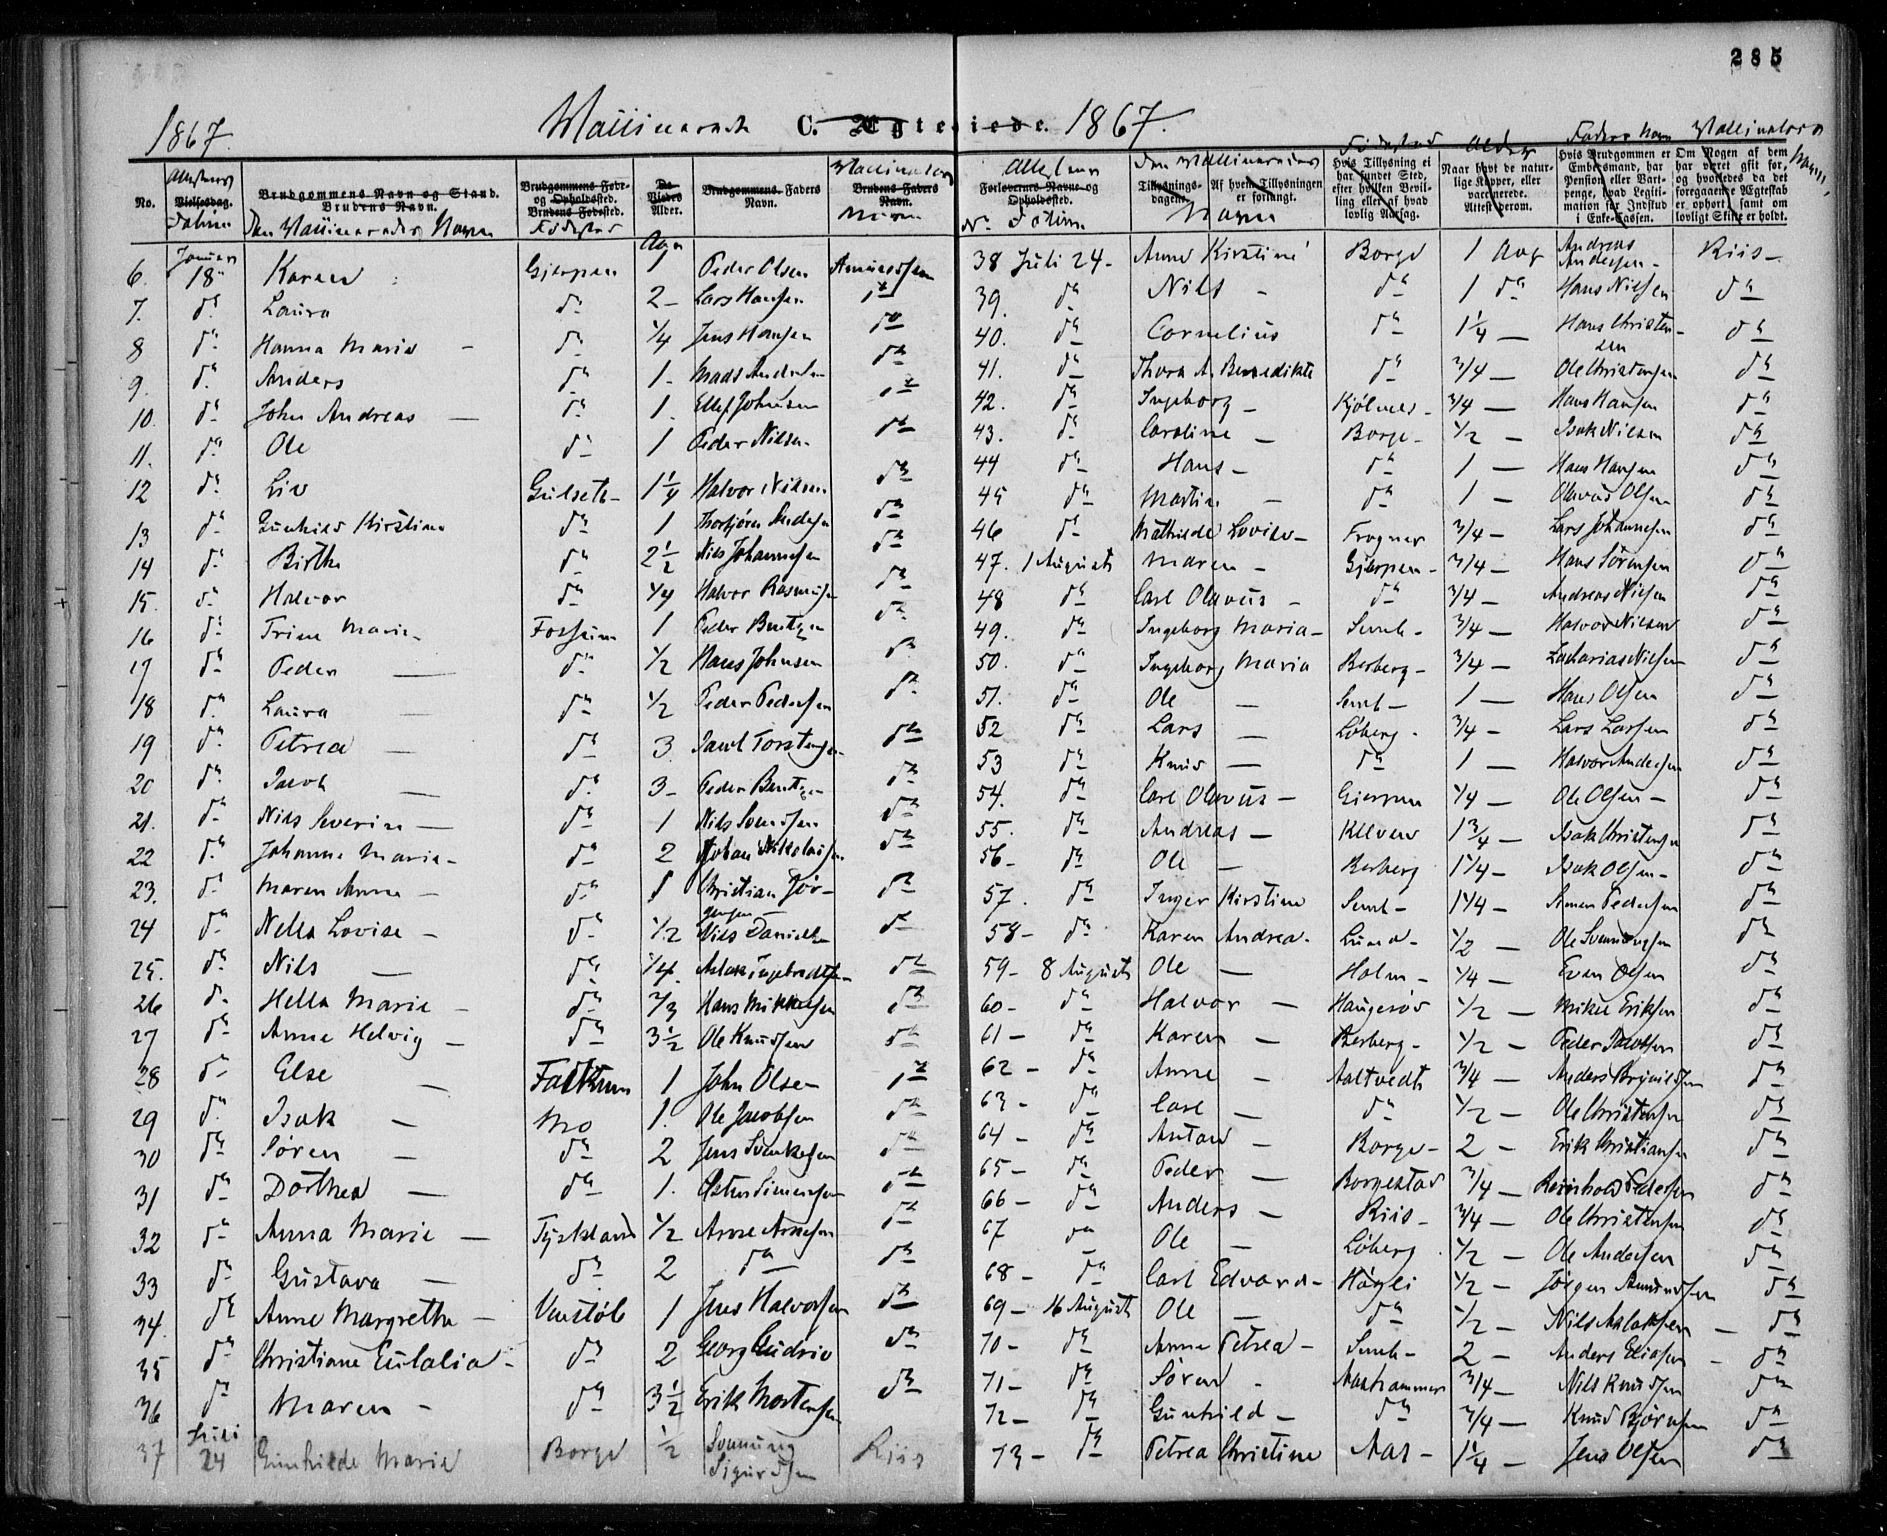 285
1867. Vaccinerede C. Ægteviede. 1867.
No. Vielsesdag. Brudgommens Navn og Stand. Brudens Navn. Brudgommens Føde- og Opholdssted. Brudens Fødested. De Viedes Alder. Brudgommens Faders Navn. Brudens Faders Navn.
Attestens Datum Den Vaccineredes Navn Fødested Vaccinators Navn
Forlovernes Navne og Opholdssted. Tillysnings-dagen. Af hvem Tillysningen er forlangt. Hvis Tillysning ei har fundet Sted, efter hvilken Bevilling eller af hvad lovlig Aarsag. Naar havt de naturlige Kopper, eller vaccinerede. Attest derom. Hvis Brudgommen er Embedsmand, har Pension eller Vartpenge, hvad Legitimation for Indskud i Enke-Cassen. Om Nogen af dem har været gift før, og hvorledes da det foregaaende Ægteskab er ophørt samt om lovligt Skifte er holdt.
No. Attestens Datum Den Vaccineredes Navn Fødested Alder Faders Navn Vaccinators Navn
6. Januar 18 Karen Gjerpen 1 Peder Olsen Amundsen
7. do Laura do 2 Lars Hansen do
8 do Hanna Maria do 1/4 Jens Hansen do
9. do Anders do 1 Mads Andersen do
10. do John Andreas do 1 Ellef Johnsen do
11. do Ole do 1 Peder Nilsen do
12 do Liv Gulseth 1 1/4 Halvor Nilsen do
13 do Gunhild Kirstine do 1 Thorbjørn Andersen do
14 do Birthe do 2 1/2 Nils Johannesen do
15. do Halvor do 1/4 Halvor Rasmusen do
16 do Trine Marie Fossum 1 Peder Bentzen do
17 do Peder do 1/2 Hans Johnsen do
18 do Laura do 1/2 Peder Pedersen do
19 do Petrea do 3 Jacob Torstensen do
20 do Jacob do 3 Peder Bentzen do
21. do Nils Severin do 1 Nils Svendsen do
22 do Johanne Marie do 2 Johan Nikolaisen do
23. do Maren Anne do 1 Christian Jørgensen do
24 do Nella Lovise do 1/2 Nils Danielsen do
25. do Nils do 1/4 Aslak Ingebretsen do
26 do Hella Marie do 2/3 Hans Mikkelsen do
27 do Anne Helvig do 3 1/2 Ole Knudsen do
28 do Else Falkum 1 John Olsen do
29 do Isak Mo 1 Ole Jacobsen do
30 do Søren do 2 Jens Svenkesen do
31 do Dorthea do 1 Simensen do
32 do Anna Marie Tyskland 1/2 Arne Arnesen do
33 do Gustava do 2 do do
34. do Anne Margrethe Venstøb 1 Jens Halvorsen do
35 do Christiane Eulalia do 2 Georg do
36 do Maren do 3 1/2 Erik Mortensen do
37 Juli 24 Gunhilde Marie Borge 1/2 Svenung Sigurdsen Riis
38 Juli 24 Anne Kirstine Borge 1 Aar Andreas Andersen Riis
39. do Nils do 1 do Hans Nilsen do
40. do Cornelius do 1 1/4 Hans Christensen do
41. do Thora A. Benedikte do 3/4 Ole Christensen do
42. do Ingeborg Kjølnes 3/4 Hans Hansen do
43. do Caroline Borge 1/2 Isak Nilsen do
44 do Hans do 1 Hans Hansen do
45 do Martin do 1 Olavus Olsen do
46 do Mathilde Lovise Frogner 3/4 Lars Johannesen do
47. 1 August Maren Gjerpen 3/4 Hans Sørensen do
48 do Carl Olavus do 3/4 Andreas Nilsen do
49. do Ingeborg Maria Semb 3/4 Halvor Nilsen do
50. do Ingeborg Maria Berberg 3/4 Zacharias Nilsen do
51. do Ole Semb 1 Hans Olsen do
52 do Lars Løberg 3/4 Lars Larsen do
53 do Knud do 1 Halvor Andersen do
54. do Carl Olavus Gjerpen 1/4 Ole Olsen do
55. do Andreas 1 3/4 Isak Christensen do
56 do Ole Berberg 1 1/4 Isak Olsen do
57. do Inger Kirstine Semb 1 1/4 Pedersen do
58 do Karen Andrea Lund 1/2 Ole Svenningsen do
59 8 August Ole Holm 1/4 Even Olsen do
60 do Halvor Haugerød 1/2 Mikel Eriksen do
61 do Karen Berberg 1/2 Peder Jacobsen do
62 do Anne Aaltvedt 3/4 Anders Brynildsen do
63 do Carl do 1/2 Ole Christensen do
64 do Anton Borge 2 Erik Christiansen do
65 do Peder Borgestad 3/4 Reinhold Pedersen do
66 do Anders Riis 3/4 Ole Christensen do
67 do Ole Løberg 1/2 Ole Andersen do
68 do Carl Edvard Høgli 1/2 Jørgen Amundsen do
69 16 August Ole do 1/2 Nils Aslaksen do
70 do Anne Petrea Semb 2 Anders Eliasen do
71 do Søren Aashammer 3/4 Nils Knudsen do
72 do Gunhild do 3/4 Knud Bjørnsen do
73 do Petrea Christine Aas 1 1/4 Jens Olsen do